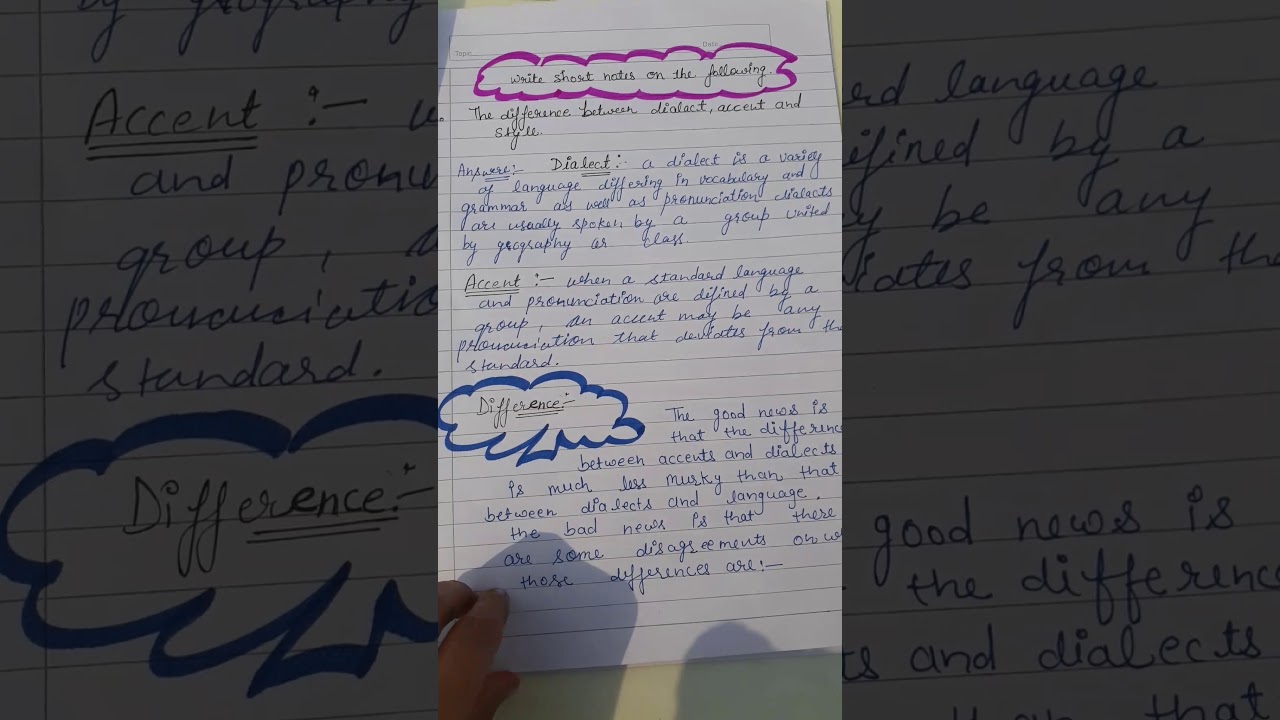 Topic
Date
write short notes on the following.
The difference between dialact, accent and
style.
Answere:- Dialect:- a dialect is a variety
of language differing in vocabulary and
grammar as well as pronunciation dialacts
are usually spoken by a group united
by geography or class.
Accent :- when a standard language
and pronunciation are difined by a
group, an accent may be any
pronunciation that deviates from the
standard.
Difference:-
The good news is
that the difference
between accents and dialects
is much less murky than that
between dialects and language.
the bad news is that there
are some disagreements on w
those differences are:-